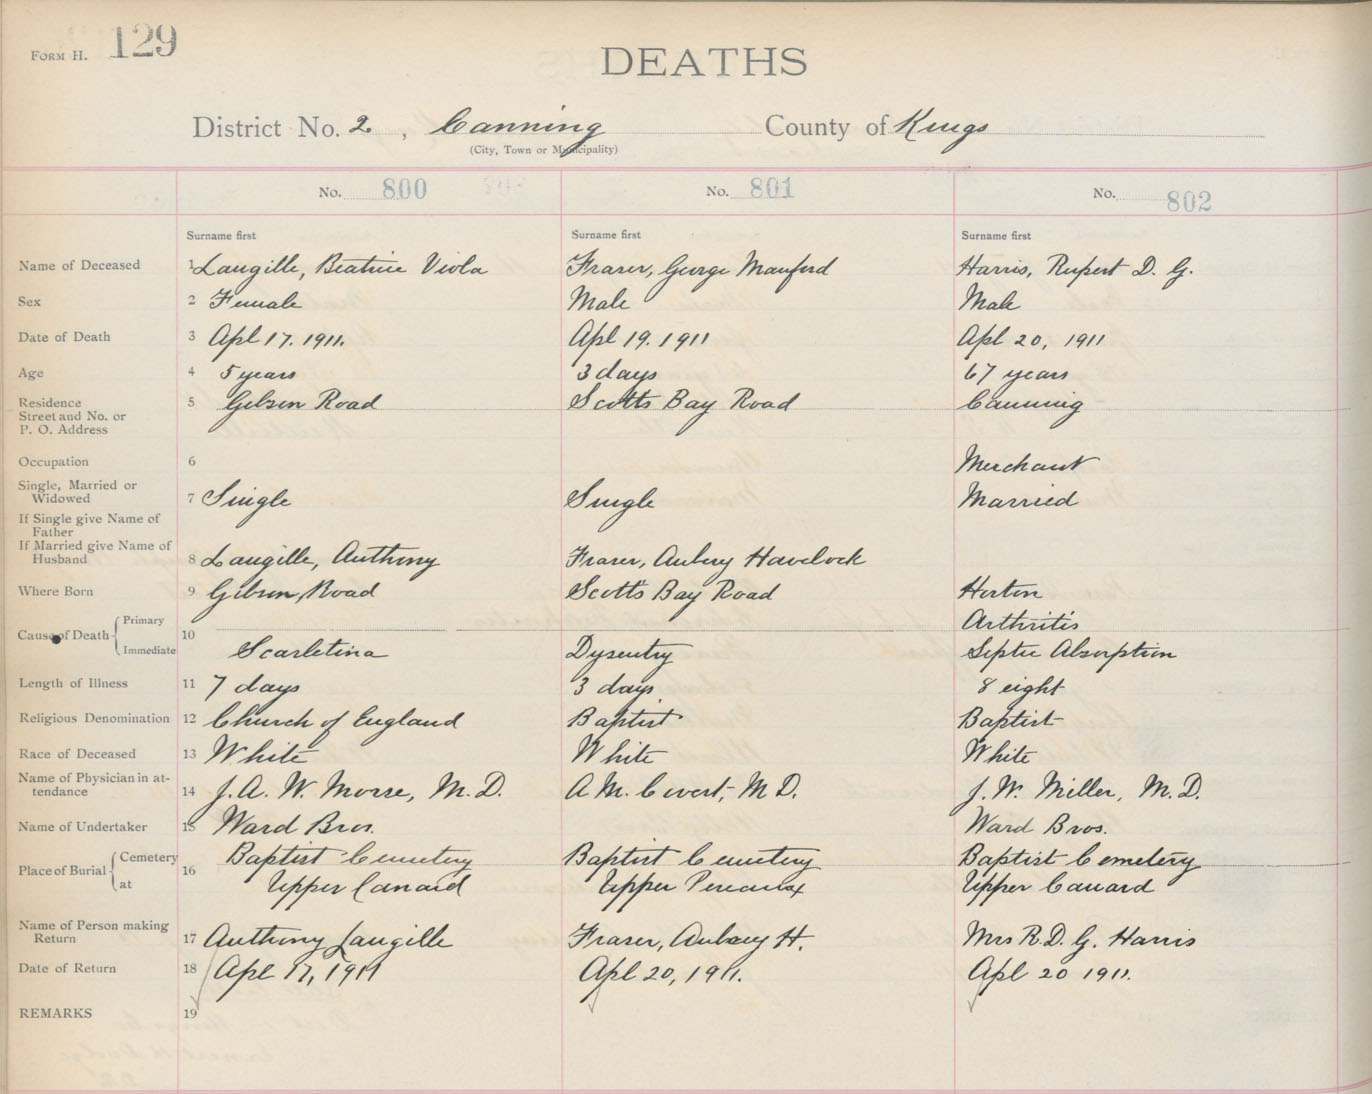 FORM H. 129
DEATHS
District No. 2, Canning County of Kings
(City, Town or Municipality)
No. 800 No. 801 No. 802
Surname first Surname first Surname first
Name of Deceased 1 Langille, Beatrice Viola Fraser, George Manford Harris, Rupert D. G.
Sex 2 Female Male Male
Date of Death 3 Apl 17. 1911. Apl 19. 1911 Apl 20, 1911
Age 4 5 years 3 days 67 years
Residence 5 Gibson Road Scotts Bay Road Canning
Street and No. or
P. O. Address
Occupation 6 Merchant
Single, Married or
Widowed 7 Single Single Married
If Single give Name of
Father
If Married give Name of
Husband 8 Langille, Anthony Fraser, Aubery Havelock
Where Born 9 Gibson Road Scotts Bay Road Horton
Cause of Death 10 Primary Arthritis
Immediate Scarletina Dysentry Septic Absorption
Length of Illness 11 7 days 3 days 8 eight
Religious Denomination 12 Church of England Baptist Baptist
Race of Deceased 13 White White White
Name of Physician in at-
tendance 14 J. A. W. Morse, M. D. A M. Covert, M D. J. W. Miller, M. D.
Name of Undertaker 15 Ward Bros. Ward Bros.
Place of Burial 16 Cemetery Baptist Cemetery Baptist Cemetery Baptist Cemetery
at Upper Canard Upper Pereaux Upper Canard
Name of Person making
Return 17 Anthony Langille Fraser, H. Mrs R. D. G. Harris
Date of Return 18 Apl 17, 1911 Apl 20, 1911. Apl 20 1911.
REMARKS 19